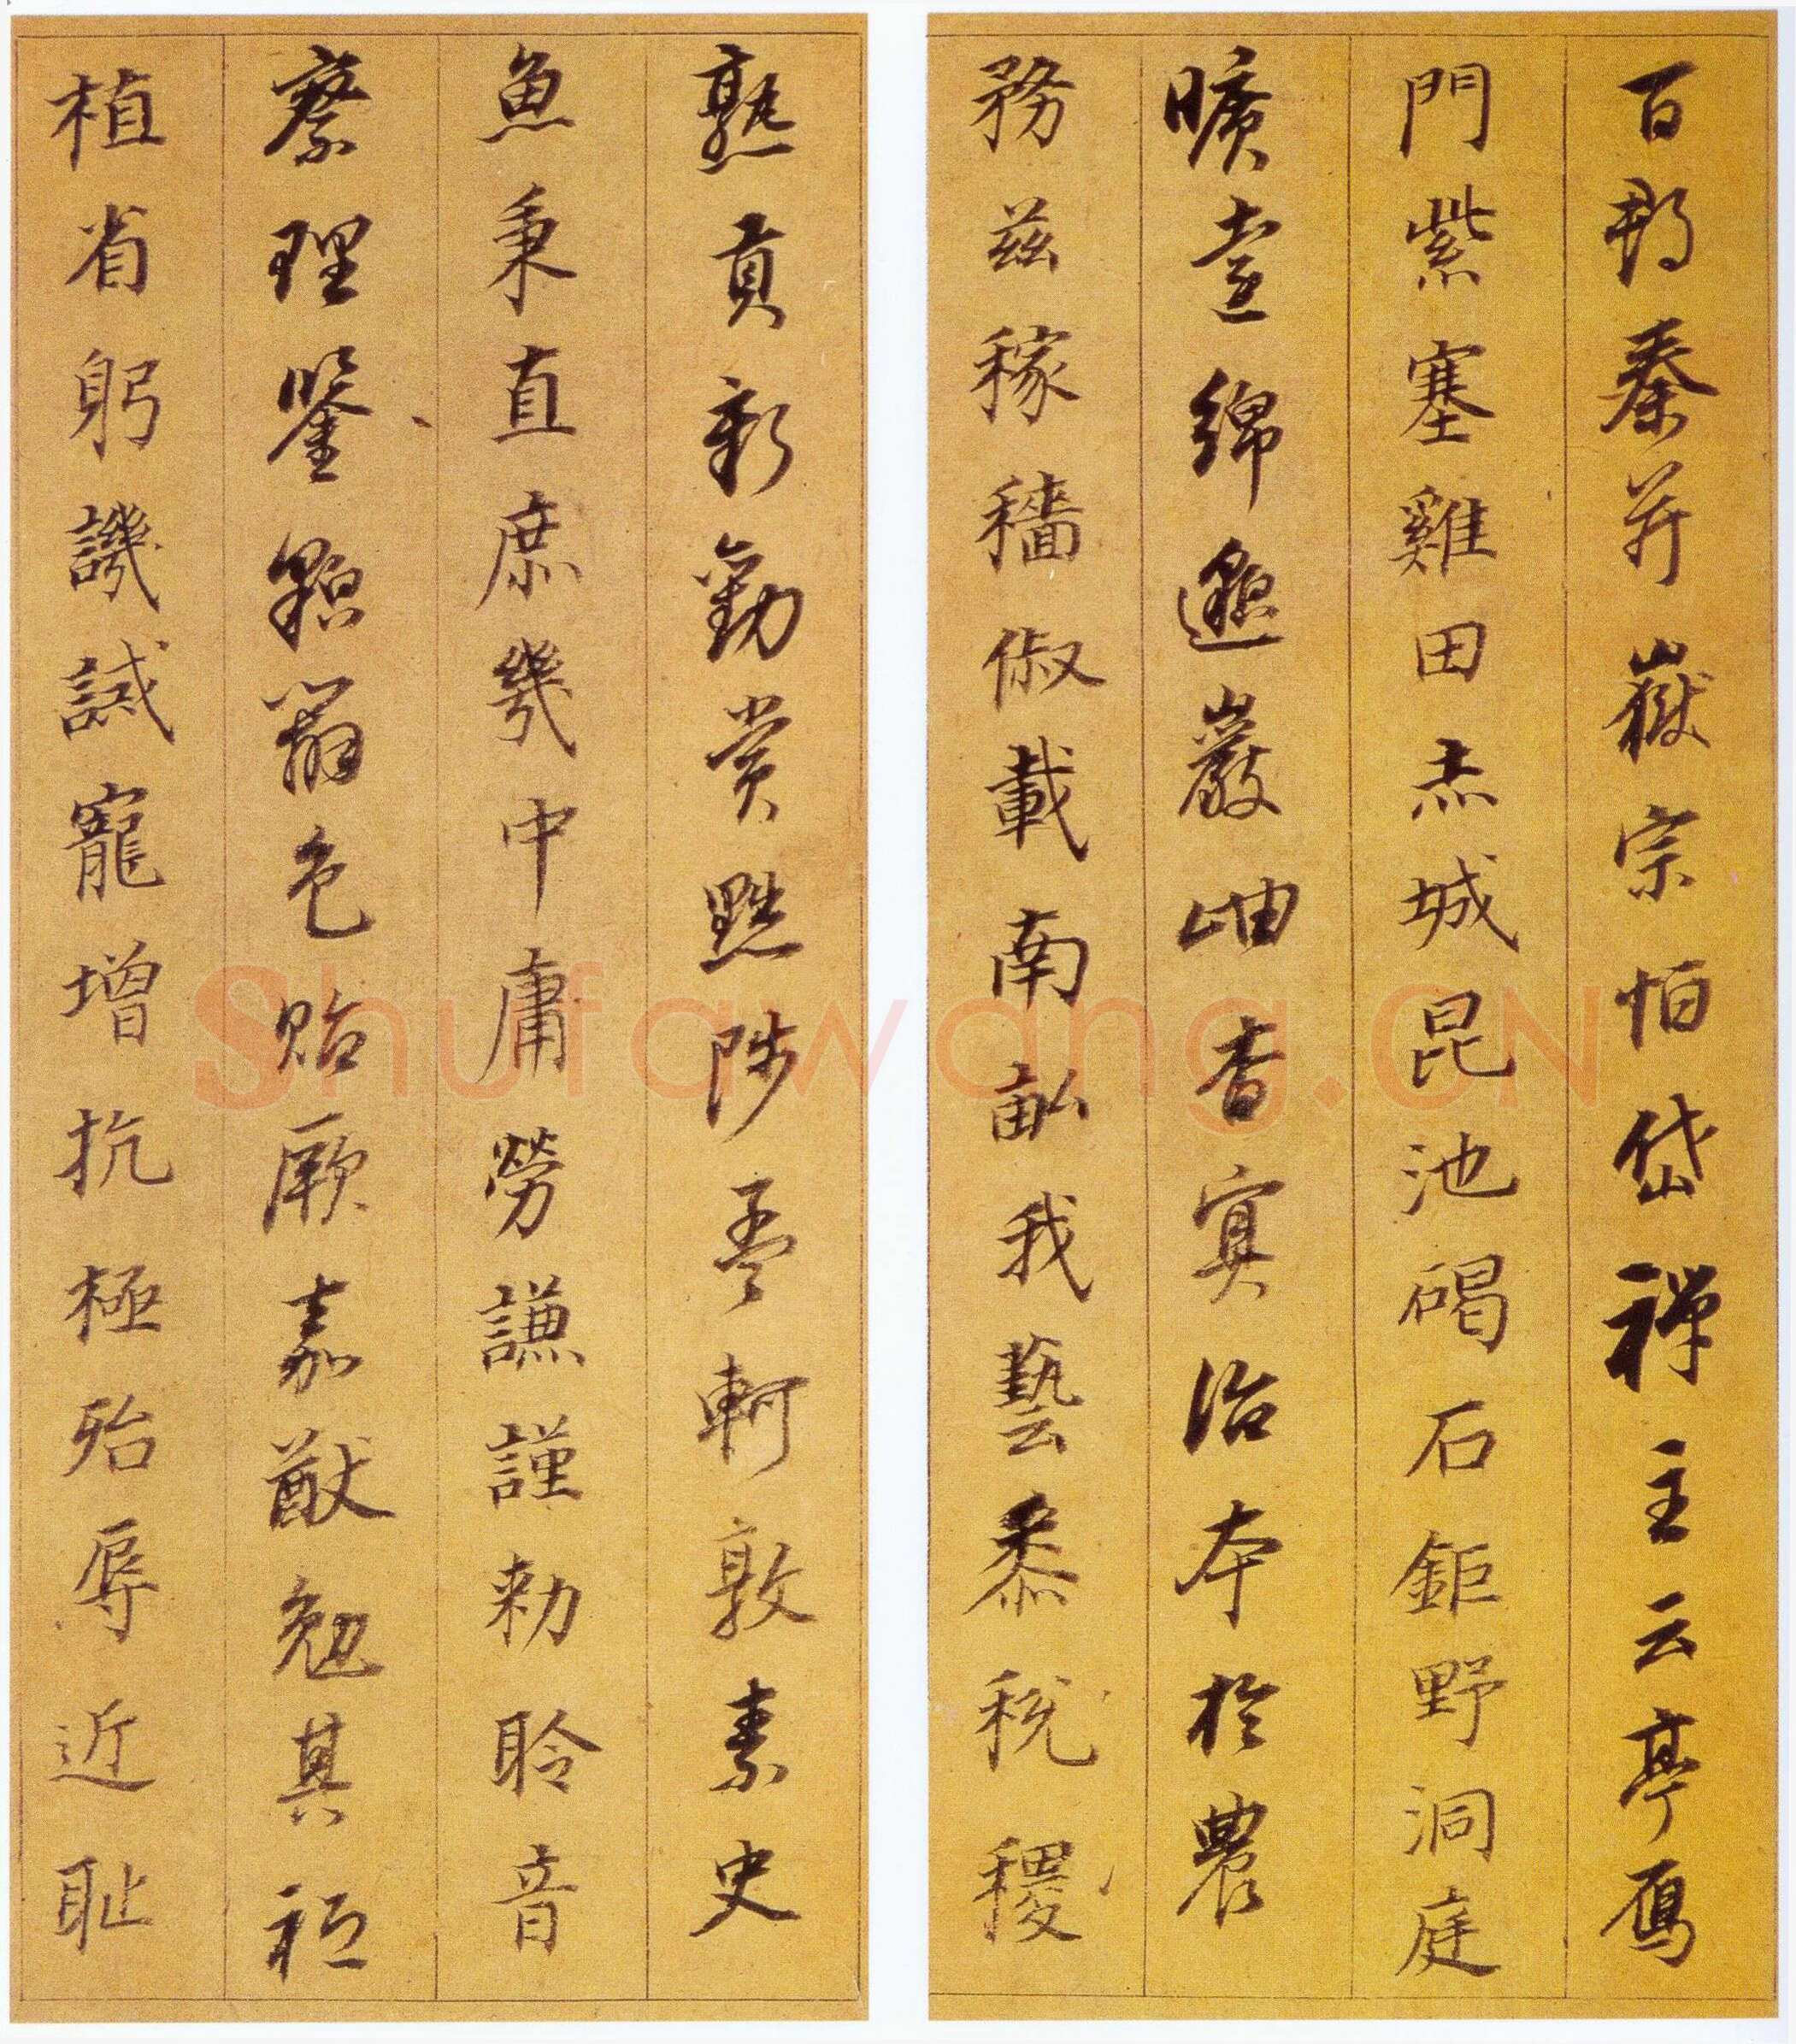 百郡秦并嶽宗恒岱禪主云亭鴈
門紫塞雞田赤城昆池碣石鉅野洞庭
曠遠綿邈巖岫杳冥治本於農
務茲稼穡俶載南畝我藝黍稅稷
熟貢新勸賞黜陟孟軻敦素史
魚秉直庶幾中庸勞謙謹勑聆音
察理鑒貌辯色貽厥嘉猷勉其祗
植省躬譏誡寵增抗極殆辱近恥
Shufawang.CN